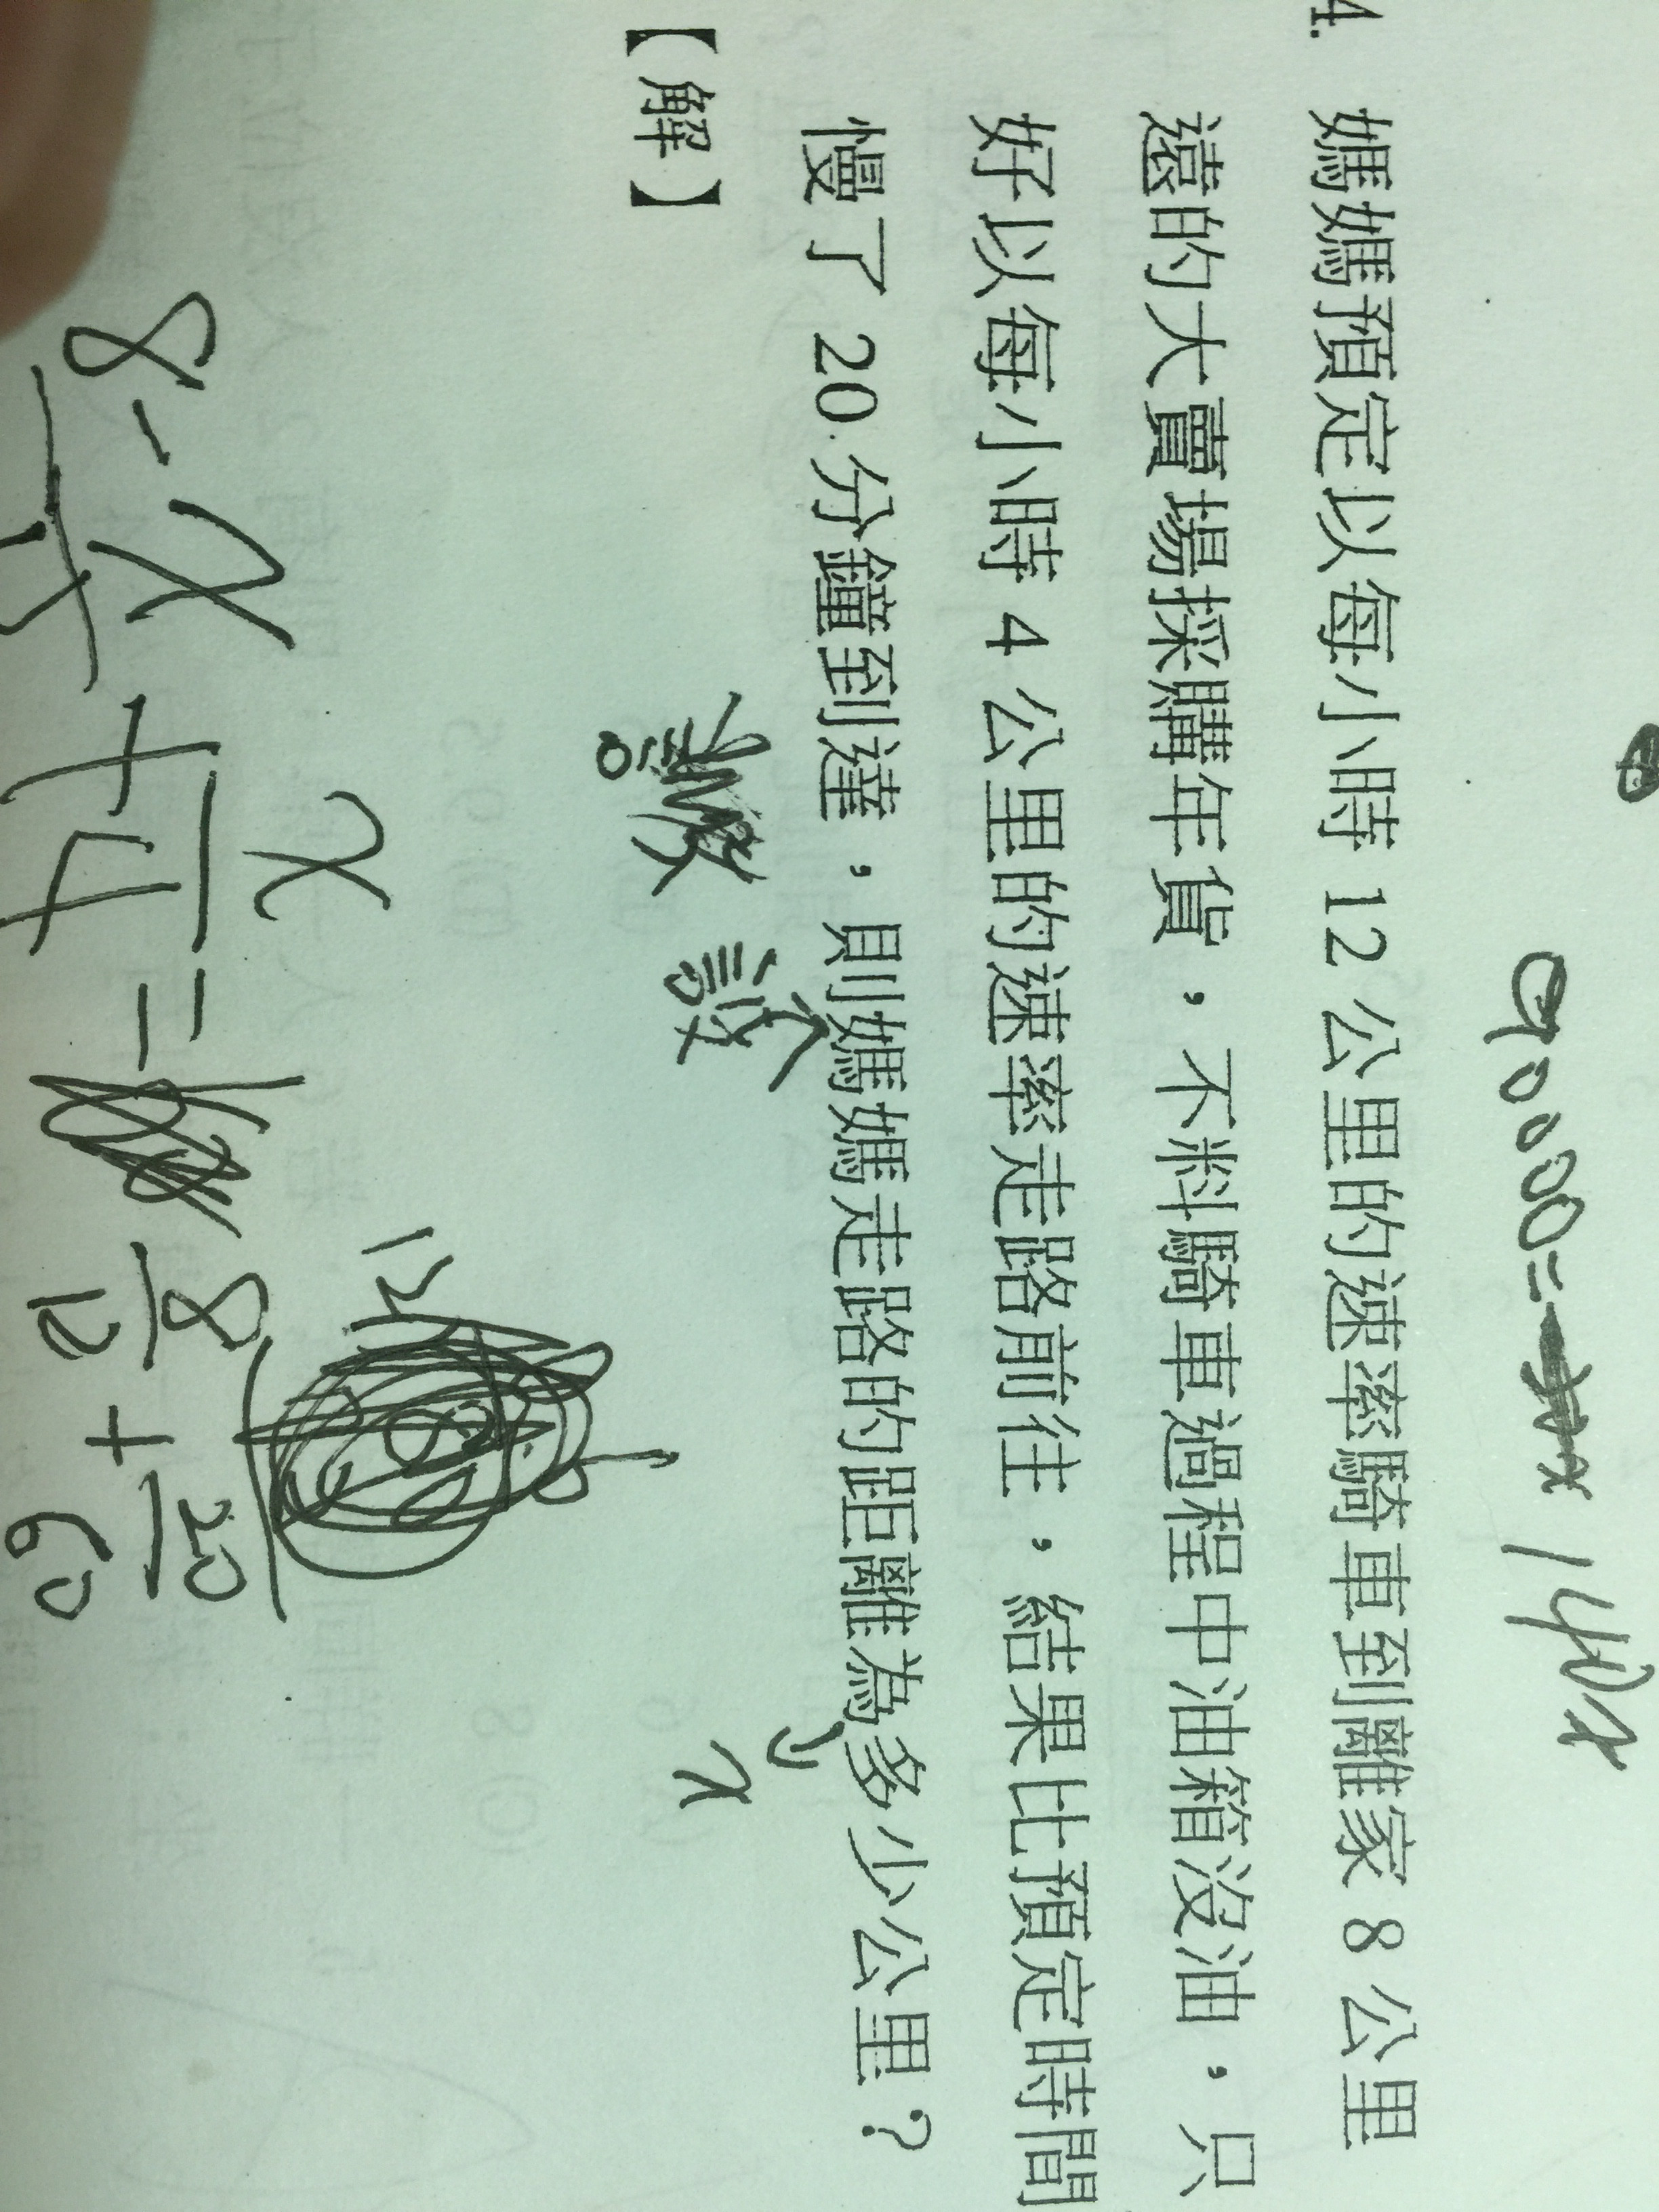 4. 媽媽預定以每小時 12 公里的速率騎車到離家 8 公里
遠的大賣場採購年貨，不料騎車過程中油箱沒油，只
好以每小時 4 公里的速率走路前往，結果比預定時間
慢了 20 分鐘到達，則媽媽走路的距離為多少公里？
【解】
設
x
8-x
+ x/4 = 8/12 + 20/60